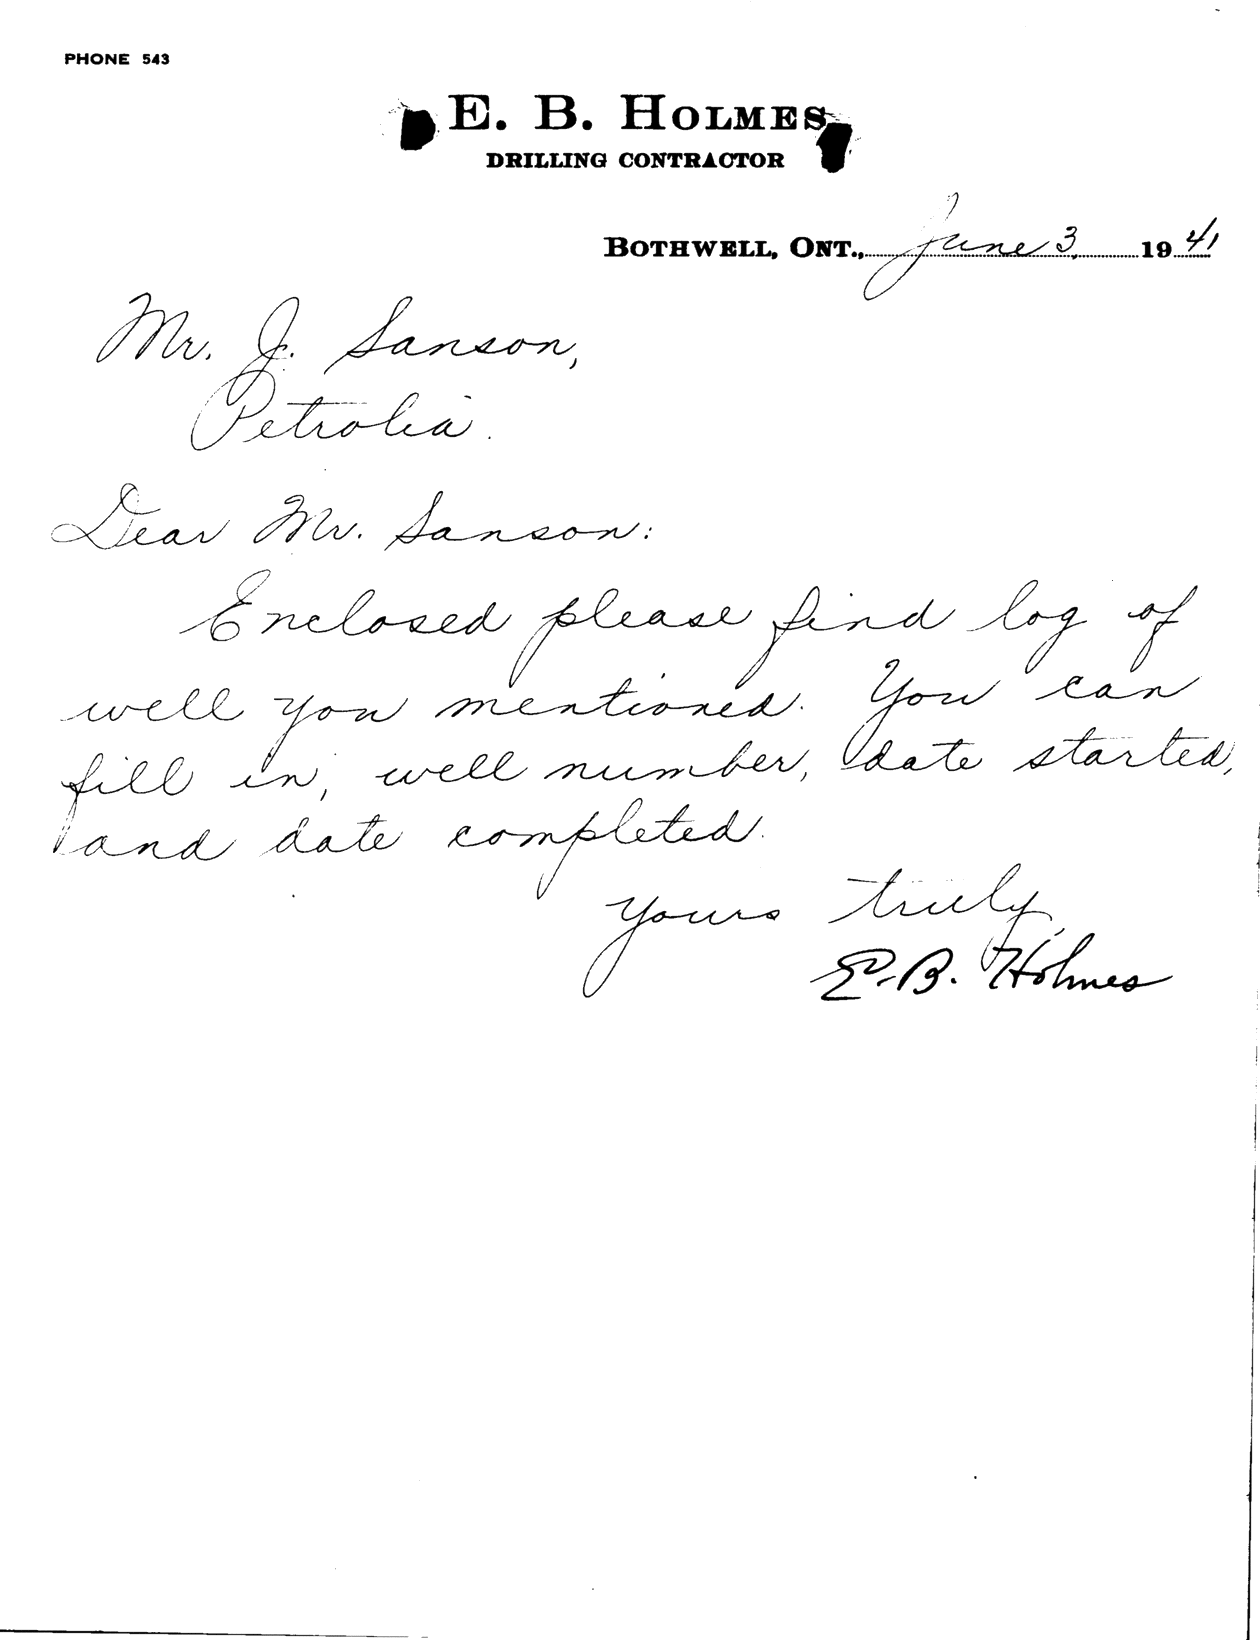 PHONE 543
E. B. HOLMES
DRILLING CONTRACTOR
BOTHWELL, ONT., June 3, 1941
Mr. J. Sanson,
Petrolia.
Dear Mr. Sanson:
Enclosed please find log of
well you mentioned. You can
fill in, well number, date started,
and date completed.
Yours truly,
E. B. Holmes